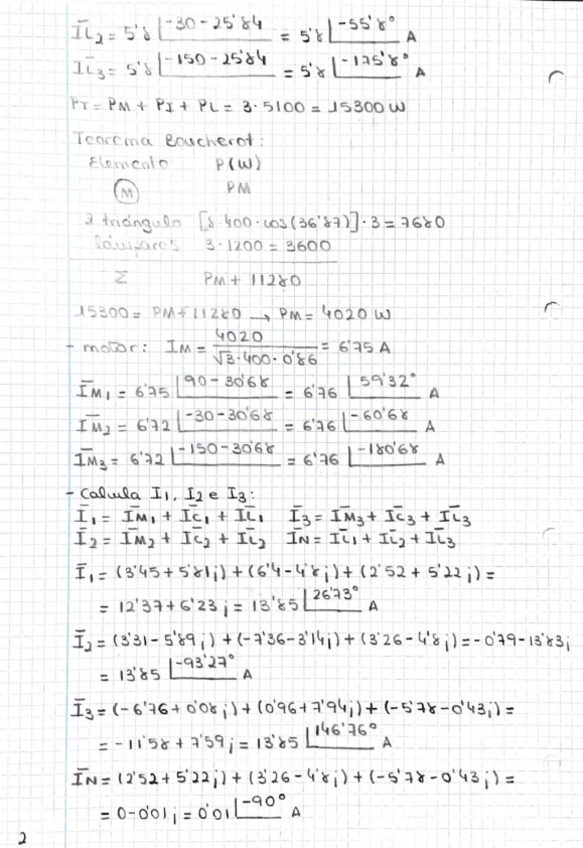 I̅L2 = 5'8 ∠-30-25'84 = 5'8 ∠-55'8° A
I̅L3 = 5'8 ∠-150-25'84 = 5'8 ∠-175'8° A
PT = PM + PI + PL = 3·5100 = 15300 W
Teorema Boucherot:
Elemento P(W)
M PM
Z triángulo [8·400·cos(36'87)]·3 = 7680
lámparas 3·1200 = 3600
Σ PM + 11280
15300 = PM + 11280 → PM = 4020 W
- motor: IM = 4020 / √3·400·0'86 = 6'75 A
I̅M1 = 6'75 ∠90-30'68 = 6'76 ∠59'32° A
I̅M2 = 6'72 ∠-30-30'68 = 6'76 ∠-60'68 A
I̅M3 = 6'72 ∠-150-30'68 = 6'76 ∠-180'68 A
- Calcula I1, I2 e I3:
I̅1 = I̅M1 + I̅C1 + I̅L1 I̅3 = I̅M3 + I̅C3 + I̅L3
I̅2 = I̅M2 + I̅C2 + I̅L2 I̅N = I̅L1 + I̅L2 + I̅L3
I̅1 = (3'45 + 5'81j) + (6'4 - 4'8j) + (2'52 + 5'22j) =
= 12'37 + 6'23j = 13'85 ∠26'73° A
I̅2 = (3'31 - 5'89j) + (-7'36 - 3'14j) + (3'26 - 4'8j) = -0'79 - 13'83j
= 13'85 ∠-93'27° A
I̅3 = (-6'76 + 0'08j) + (0'96 + 7'94j) + (-5'78 - 0'43j) =
= -11'58 + 7'59j = 13'85 ∠146'76° A
I̅N = (2'52 + 5'22j) + (3'26 - 4'8j) + (-5'78 - 0'43j) =
= 0 - 0'01j = 0'01 ∠-90° A
2